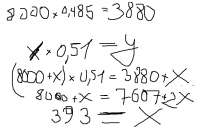 8000 × 0,485 = 3880
x × 0,51 = y
(8000+x) × 0,51 = 3880+x
8000+x = 7607+2x
393 = x